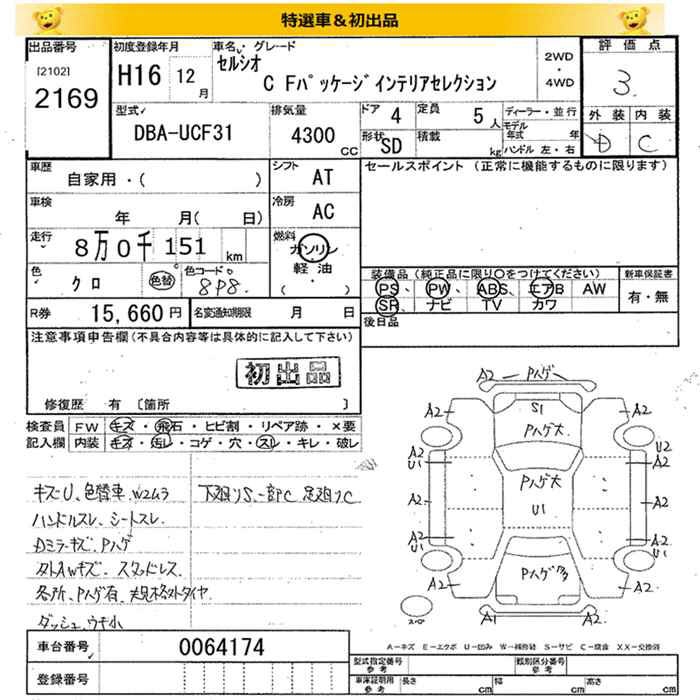 特選車＆初出品
出品番号 初度登録年月 車名・グレード 2WD・4WD 評価点
[2102] 2169 H16 12月 セルシオ C Fパッケージインテリアセレクション 3
型式 排気量 ドア 4 定員 5人 ディーラー・並行 外装 内装
DBA-UCF31 4300cc 形状 SD 積載 kg モデル年式 年 D C
ハンドル 左・右
車歴 自家用・( ) シフト AT セールスポイント (正常に機能するものに限ります)
車検 年 月( 日) 冷房 AC
走行 8万0千151km 燃料 ガソリン・軽油・( )
色 クロ 色替 色コード 8P8 装備品 (純正品に限り○をつけてください) 新車保証書
PS、PW、ABS、エアB AW 有・無
SR、ナビ TV カワ
R券 15,660円 名変通知期限 月 日 後日品
注意事項申告欄 (不具合内容等は具体的に記入して下さい)
初出品
修復歴 有 [箇所 ]
検査員 FW キズ・飛石・ヒビ割・リペア跡・×要
記入欄 内装 キズ・汚レ・コゲ・穴・スレ・キレ・破レ
キズU、色替車、W2ムラ 下廻りS、一部C 足廻りC
ハンドルスレ、シートスレ
Dミラーキズ、Pハゲ
外AWキズ、スタッドレス
各所、Pハゲ有、規格外タイヤ
ダッシュウキ小
A2 Pハゲ A2
A2 S1 A2
Pハゲ大
A2 U1 U2 A2
Pハゲ大
A2 U1 A2
A2 U1 A2 U1
A2 Pハゲ多 A2
A1 A2
スペア
車台番号 0064174
登録番号
A－キズ E－エクボ U－凹み W－補修跡 S－サビ C－腐食 XX－交換済
型式指定番号 参考 類別区分番号 参考
車庫証明用 参考 長さ cm 幅 cm 高さ cm